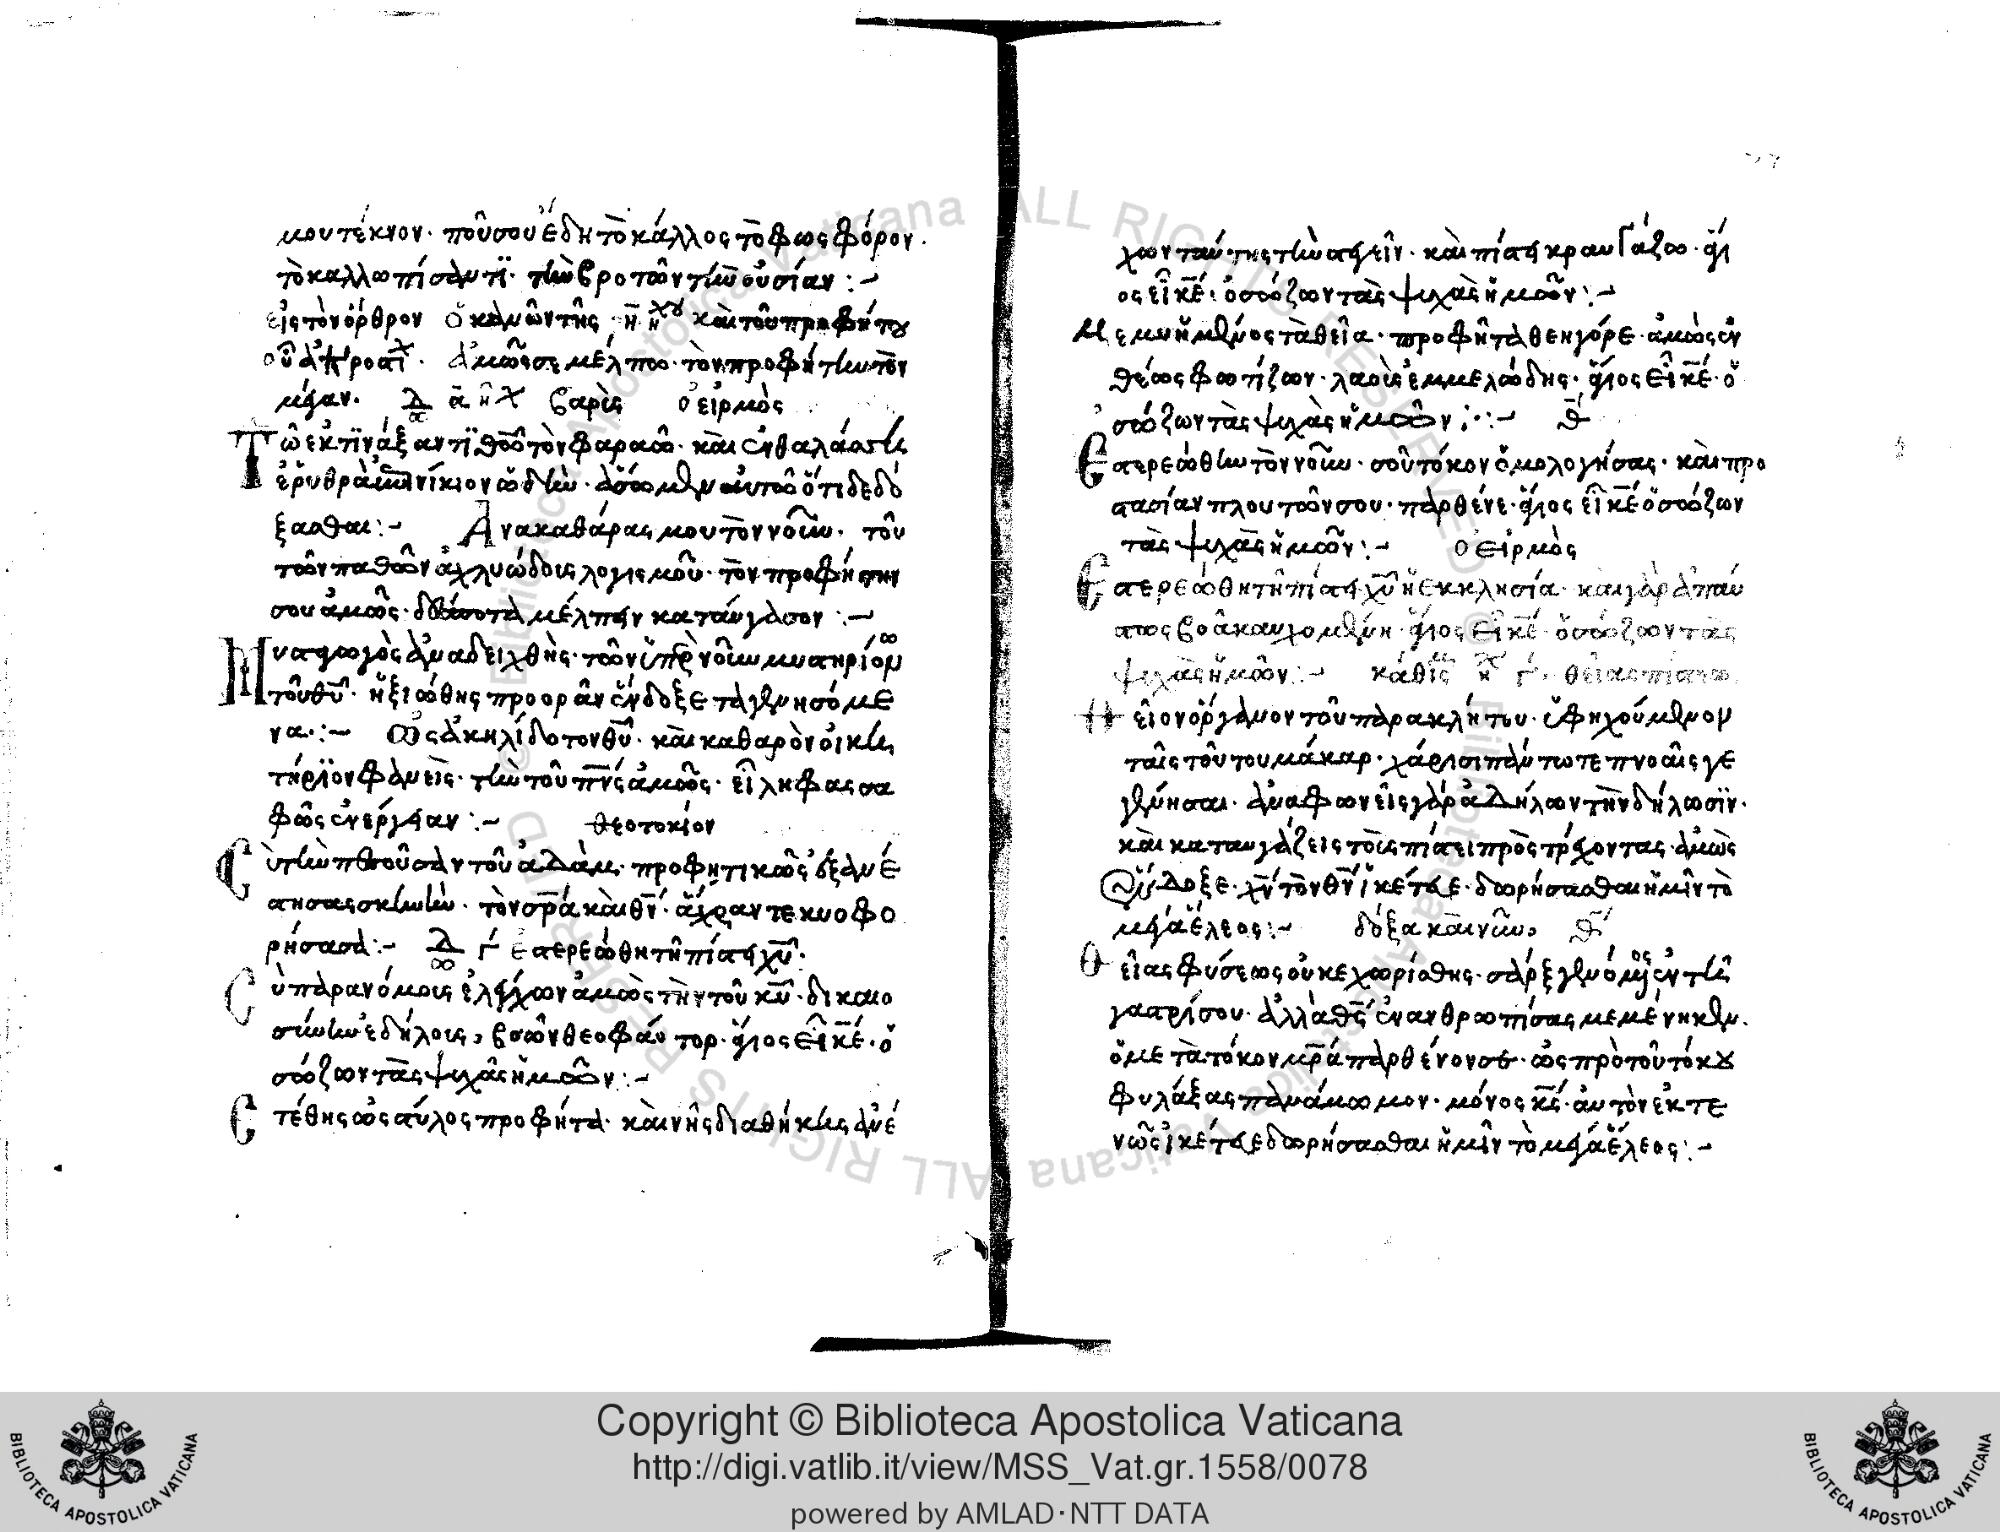 μου τέκνον· ποῦ σου ἔδη τὸ κάλλος τὸ φωσφόρον·
τὸ καλλωπίσαντι τὴν βροτῶν τὴν οὐσίαν:~
εἰς τὸν ὄρθρον ὁ κανὼν τῆς καὶ τοῦ προφήτου
οὗ ἀκροστιχ· ἀμώς σε μέλπω· τὸν προφήτην τὸν
μέγαν· βαρὺς ὁ εἱρμὸς
Τῶ ἐκτινάξαντι θεῶ τὸν φαραὼ· καὶ ἐν θαλάσση
ἐρυθρᾶ ἐπινίκιον ὠδὴν· ἄσωμεν αὐτῶ ὅτι δεδό
ξασται:~ Ἀνακαθάρας μου τὸν νοῦν· τοῦ
τῶν παθῶν ἀχλυώδους λογισμοῦ· τὸν προφήτην
σου ἀμώς· μέλπειν καταύγασον:~
Μυσταγωγὸς ἀναδειχθεὶς· τῶν ὑπὲρ νοῦν μυστηρίων
τοῦ θῦ· ἠξιώθης προορᾶν ἔνδοξε τὰ γενησόμε
να:~ Ὡς ἀκηλίδοτον θῦ· καὶ καθαρὸν οἰκη
τήριον φανεὶς· τὴν τοῦ πνς ἀμώς· εἴληφας σα
φῶς ἐνέργειαν:~ θεοτοκίον
Σὺ τὴν πεσοῦσαν τοῦ ἀδὰμ· προφητικῶς ἐξανέ
στησας σκηνὴν· τὸν σρα καὶ θν· ἄχραντε κυοφο
ρήσασα:~ γ ἐστερεώθη τῆ πίστει χῦ·
Σὺ παρανόμους ἐλέγχων ἀμὼς τὴν τοῦ κῦ· δικαιο
σύνην ἐδήλους, βοῶν θεοφάντορ· ἅγιος εἶ κε· ὁ
σώζων τὰς ψυχὰς ἡμῶν:~
Ετέθης ὡς στύλος προφήτα· καινῆς διαθήκης ἀνέ
χων ταύτης τὴν στέγην· καὶ πίστει κραυγάζω· ἅγι
ος εἶ κε· ὁ σώζων τὰς ψυχὰς ἡμῶν:~
Μεμυημένος τὰ θεῖα· προφῆτα θεηγόρε· ἀμὼς ἐν
θέως φωτίζων· λαοὺς ἐμμελώδης· ἅγιος εἶ κε· ὁ
σώζων τὰς ψυχὰς ἡμῶν:~ θ
Εστερεώθην τὸν νοῦν· σοῦ τόκον ὁμολογήσας· καὶ προ
στασίαν πλουτῶν σου· παρθένε· ἅγιος εἶ κε ὁ σώζων
τὰς ψυχὰς ἡμῶν:~ ὁ εἱρμὸς
Εστερεώθη τῆ πίστει χῦ ἡ ἐκκλησία· καὶ γὰρ ἀπαύ
στως βοᾶ καυχομένη· ἅγιος εἶ κε· ὁ σώζων τὰς
ψυχὰς ἡμῶν:~ κάθισ γ· θείας πίστεως
Θεῖον ὄργανον τοῦ παρακλήτου· ὑφηχούμενον
ταῖς τούτου μάκαρ· χάρισι πάντοτε πνοαῖς γε
γένησαι· ἀναφωνεῖς γὰρ ἀδήλων τὴν δήλωσιν·
καὶ καταυγάζεις τοὺς πίστει προστρέχοντας· ἀμὼς
ἔνδοξε· χν τὸν θν ἱκέτευε· δωρήσασθαι ἡμῖν τὸ
μέγα ἔλεος:~ δόξα καὶ νῦν, θ
Θείας φύσεως οὐκ ἐχωρίσθης· σὰρξ γενόμενος ἐν τῆ
γαστρί σου· ἀλλὰ θς ἐνανθρωπίσας μεμένηκεν·
ὁ μετὰ τόκον μρα παρθένον σε· ὡς πρὸ τοῦ τόκου
φυλάξας πανάμωμον· μόνος κς· αὐτὸν ἐκτε
νῶς ἱκέτευε δωρήσασθαι ἡμῖν τὸ μέγα ἔλεος:~
Copyright © Biblioteca Apostolica Vaticana
http://digi.vatlib.it/view/MSS_Vat.gr.1558/0078
powered by AMLAD·NTT DATA
BIBLIOTECA APOSTOLICA VATICANA
BIBLIOTECA APOSTOLICA VATICANA